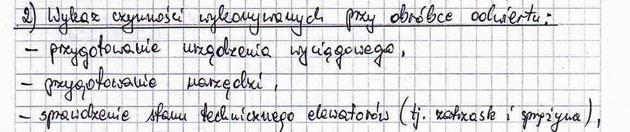 2) Wykaz czynności wykonywanych przy obróbce odwiertu:
- przygotowanie urządzenia wyciągowego,
- przygotowanie narzędzi,
- sprawdzenie stanu technicznego elewatorów (tj. zatrzask i sprężyna),